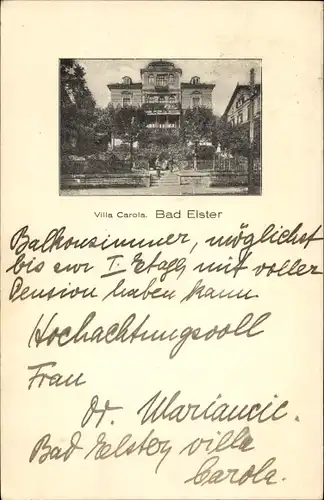 Villa Carola. Bad Elster
Balkonzimmer, möglichst
bis zur I. Etage mit voller
Pension haben kann
Hochachtungsvoll
Frau
Dr.
Bad Elster, villa
Carola.